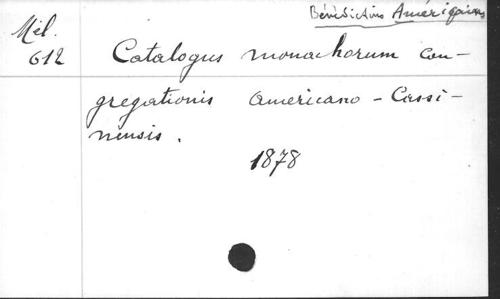 Bénédictins Américains
Mél.
612
Catalogus monachorum con-
gregationis americano - Cassi-
nensis.
1878